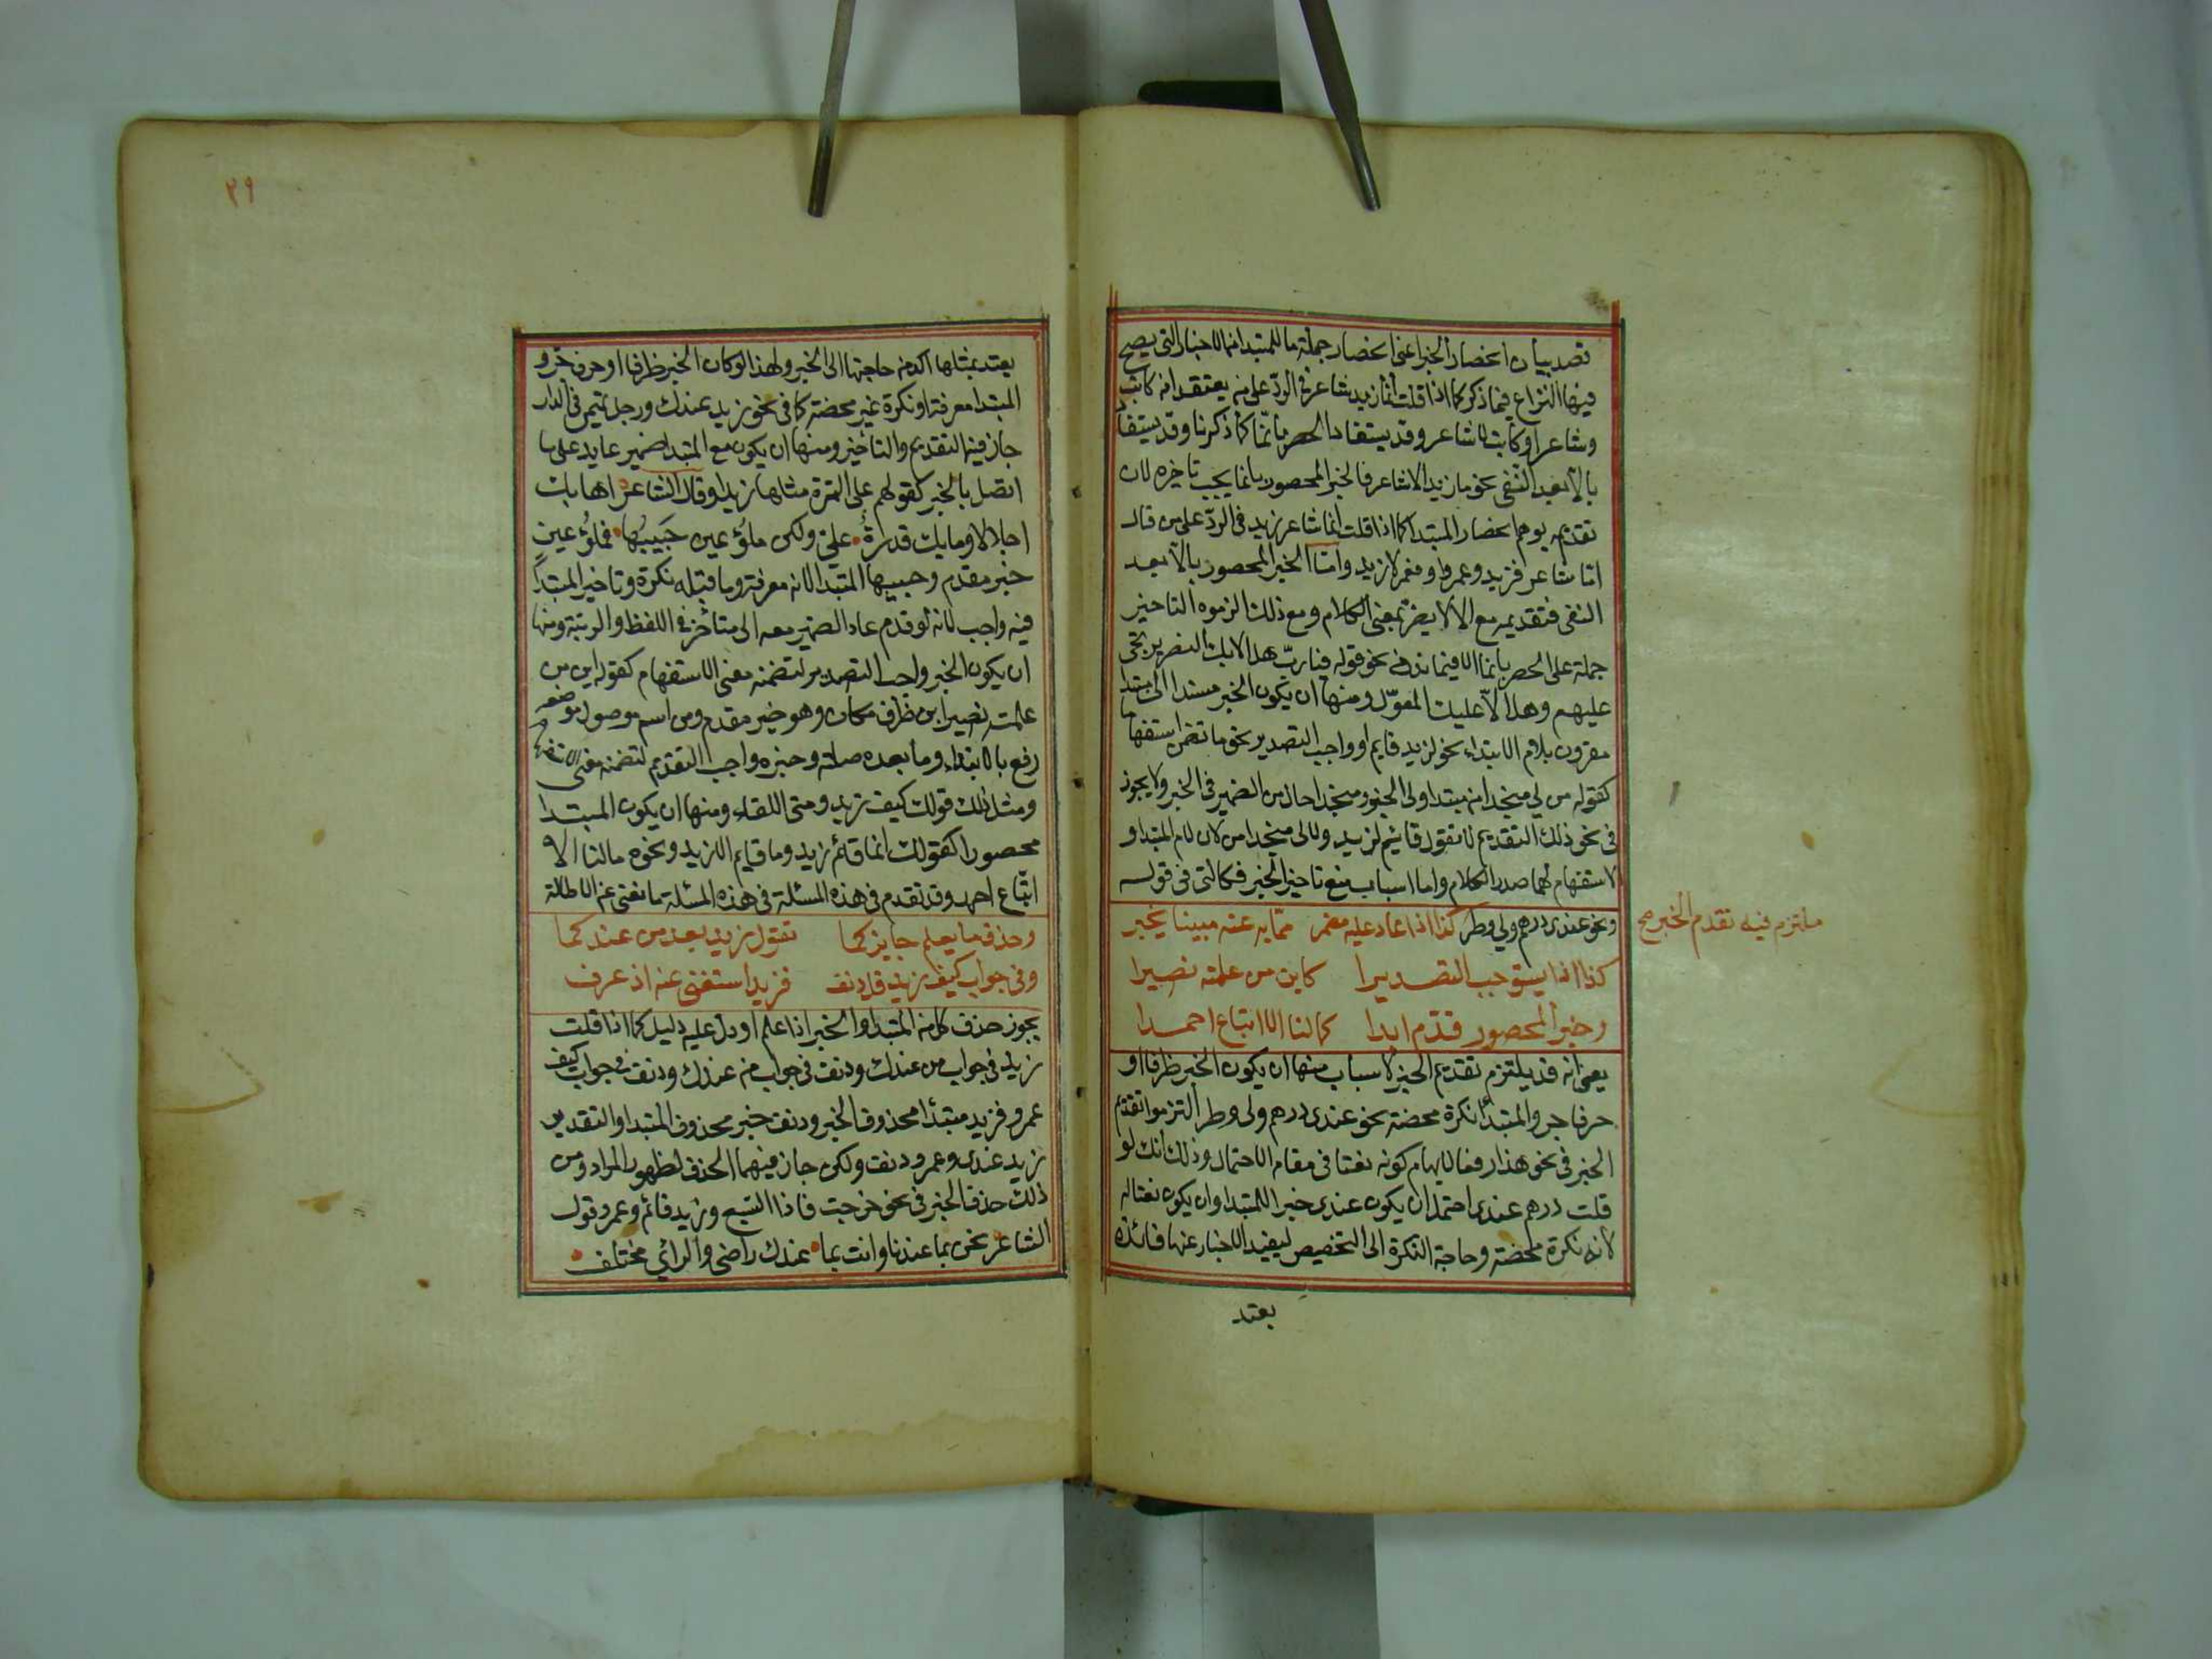 قصد بيان انحصار الخبر اعني انحصار جملة ما للمبتدا من الاخبار التي يصح
فيها النزاع فيما ذكر كما اذا قلت انما زيد شاعر في الردّ على من يعتقد انه كاتب
وشاعر او كاتب لا شاعر وقد يستفاد الحصر بانّما كما ذكرنا وقد يستفاد
بالا بعد النفي نحو ما زيد الا شاعر فالخبر المحصور بانما يجب تاخيره لان
تقديمه يوهم انحصار المبتدا كما اذا قلت انما شاعر زيد في الردّ على من قال
انما شاعر فزيد وعمرو لا زيد وامّا الخبر المحصور بالا بعد
النفي فتقديمه مع الا لا يضر بمعنى الكلام ومع ذلك الزموه التاخير
حملة على الحصر بانما الا فيما ندر في نحو قوله فيا ربّ هل الا بك النصر يرتجى
عليهم وهل الّا عليك المعوّل ومنها ان يكون الخبر مسندا الى مبتدا
مقرون بلام الابتداء نحو لزيد قايم او واجب التصدير نحو ما تضمن استفهاما
كقوله من لي منجدا من مبتدا ولي الخبر ومنجدا حال من الضمير في الخبر ولا يجوز
في نحو ذلك التقديم لا تقول قائم لزيد ولا لي منجدا من لان لام المبتدا و
لاستفهام لهما صدر الكلام واما اسباب منع تاخير الخبر فكالتي في قوله
ونحو عندي درهم ولي وطر كذا اذا عاد عليه مضمر مما به عنه مبينا يخبر
ما تزم فيه تقدم الخبر صح
كذا اذا يستوجب التصديرا كاين من علمته نصيرا
وخبر المحصور قدّم ابدا كما لنا الا اتباع احمدا
يعني انه قد يلتزم تقديم الخبر لاسباب منها ان يكون الخبر ظرفا او
حرف جر والمبتدأ نكرة محضة نحو عندي درهم ولي وطر التزموا تقديم
الخبر في نحو هذا رفعا لايهام كونه نعتا في مقام الاحتمال وذلك انك لو
قلت درهم عندي احتمل ان يكون عندي خبرا للمبتدا وان يكون نعتا له
لانه نكرة محضة وحاجة النكرة الى التخصيص ليفيد الاخبار عنها فائدة
يعتد
٢٩
يعتد بمثلها اكد من حاجتها الى الخبر ولهذا لو كان الخبر ظرفا او حرف جر و
المبتدا معرفة او نكرة غير محضة كما في نحو زيد عندك ورجل تميمي في الدار
جاز فيه التقديم والتاخير ومنها ان يكون مع المبتدا ضمير عايد على ما
اتصل بالخبر كقولهم على التمرة مثلها زبدا وقال الشاعر اهابك
اجلالا وما بك قدرة على ولكن ملؤ عين حَبيبُها فملؤ عين
خبر مقدم وحبيبها المبتدا لانه معرفة وما قبله نكرة وتاخير المبتدا
فيه واجب لانه لو قدم عاد الضمير معه الى متأخر في اللفظ والرتبة ومنها
ان يكون الخبر واجب التصدير لتضمنه معنى الاستفهام كقوله اين من
علمته نصيرا اين ظرف مكان وهو خبر مقدم ومن اسم موصول موضعه
رفع بالابتداء وما بعده صلته وخبره واجب التقديم لتضمنه معنى الاستفهام
ومثل ذلك قولك كيف زيد ومتى اللقاء ومنها ان يكون المبتدا
محصورا كقولك انما قائم زيد وما قايم الا زيد ونحوه مالنا الا
اتّباع احمد وقد تقدم في هذه المسئلة في هذه المسئلة ما نغني عن الاطالة
وحذف ما يعلم جايز كما تقول زيد بعد من عندكما
وفي جواب كيف زيد قل دنف فزيد استغني عنه اذ عرف
يجوز حذف كل من المبتدا والخبر اذا علم او دل عليه دليل كما اذا قلت
زيد في جواب من عندك ودنف في جواب من عندك ودنف في جواب كيف
عمرو فزيد مبتدأ محذوف الخبر ودنف خبر محذوف المبتدا والتقدير
زيد عندي وعمرو دنف ولكن جاز فيهما الحذف لظهور المراد ومن
ذلك حذف الخبر في نحو خرجت فاذا السبع وزيد قائم وعمرو وقول
الشاعر نحن بما عندنا وانت بما عندك راضي والرائي مختلف